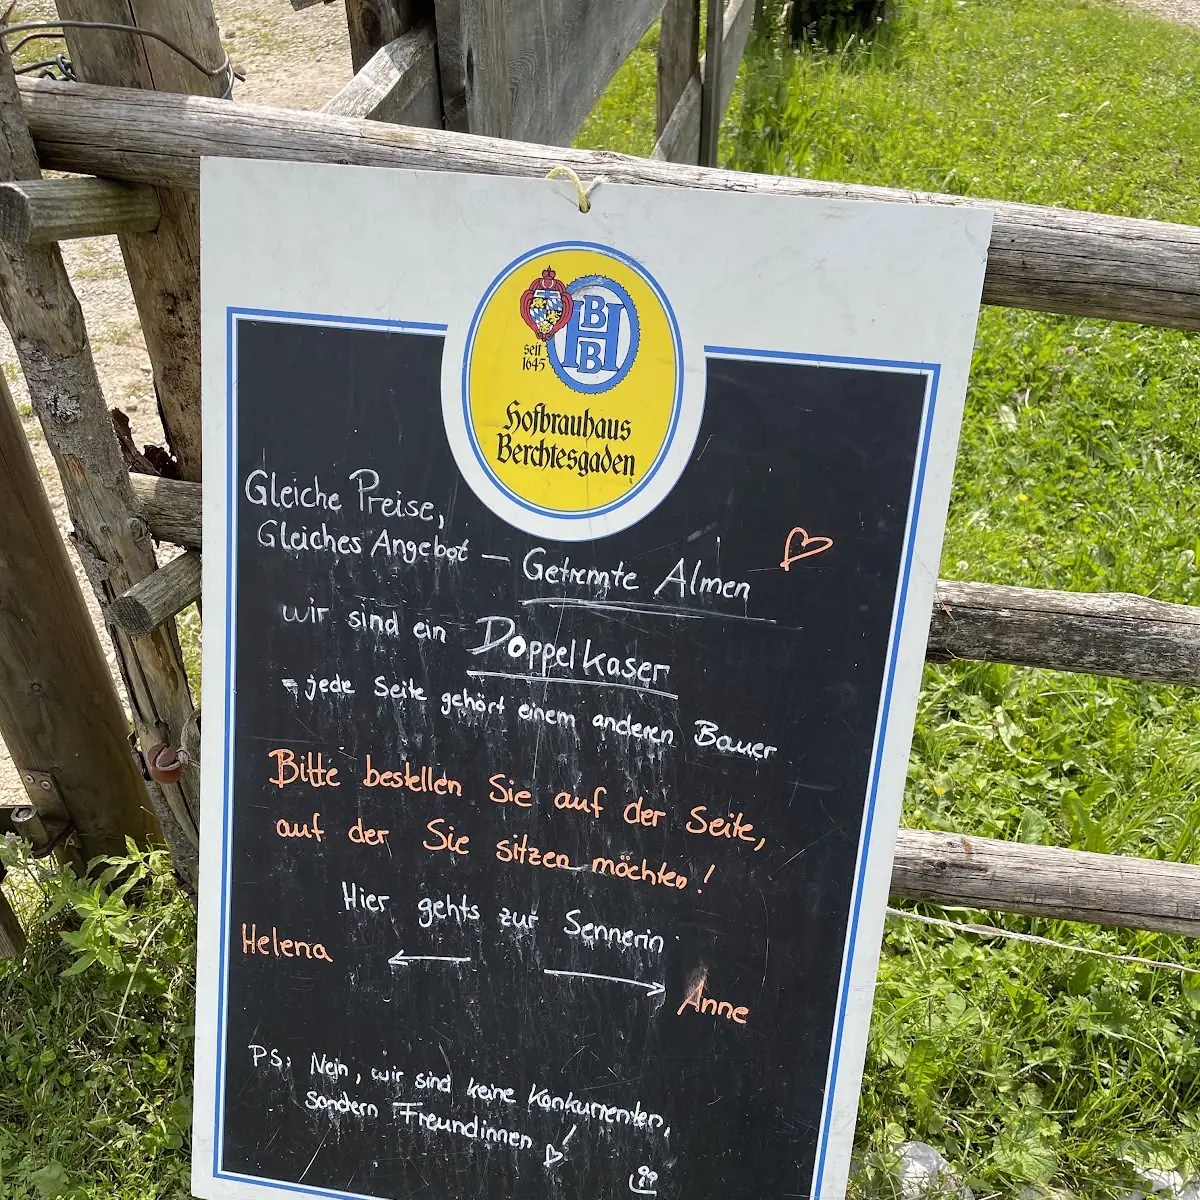 HBB
seit
1645
Hofbräuhaus
Berchtesgaden
Gleiche Preise,
Gleiches Angebot – Getrennte Almen
wir sind ein Doppelkaser
= jede Seite gehört einem anderen Bauer
Bitte bestellen Sie auf der Seite,
auf der Sie sitzen möchten!
Hier gehts zur Sennerin
Helena ← → Anne
PS: Nein, wir sind keine Konkurrenten,
sondern Freundinnen!